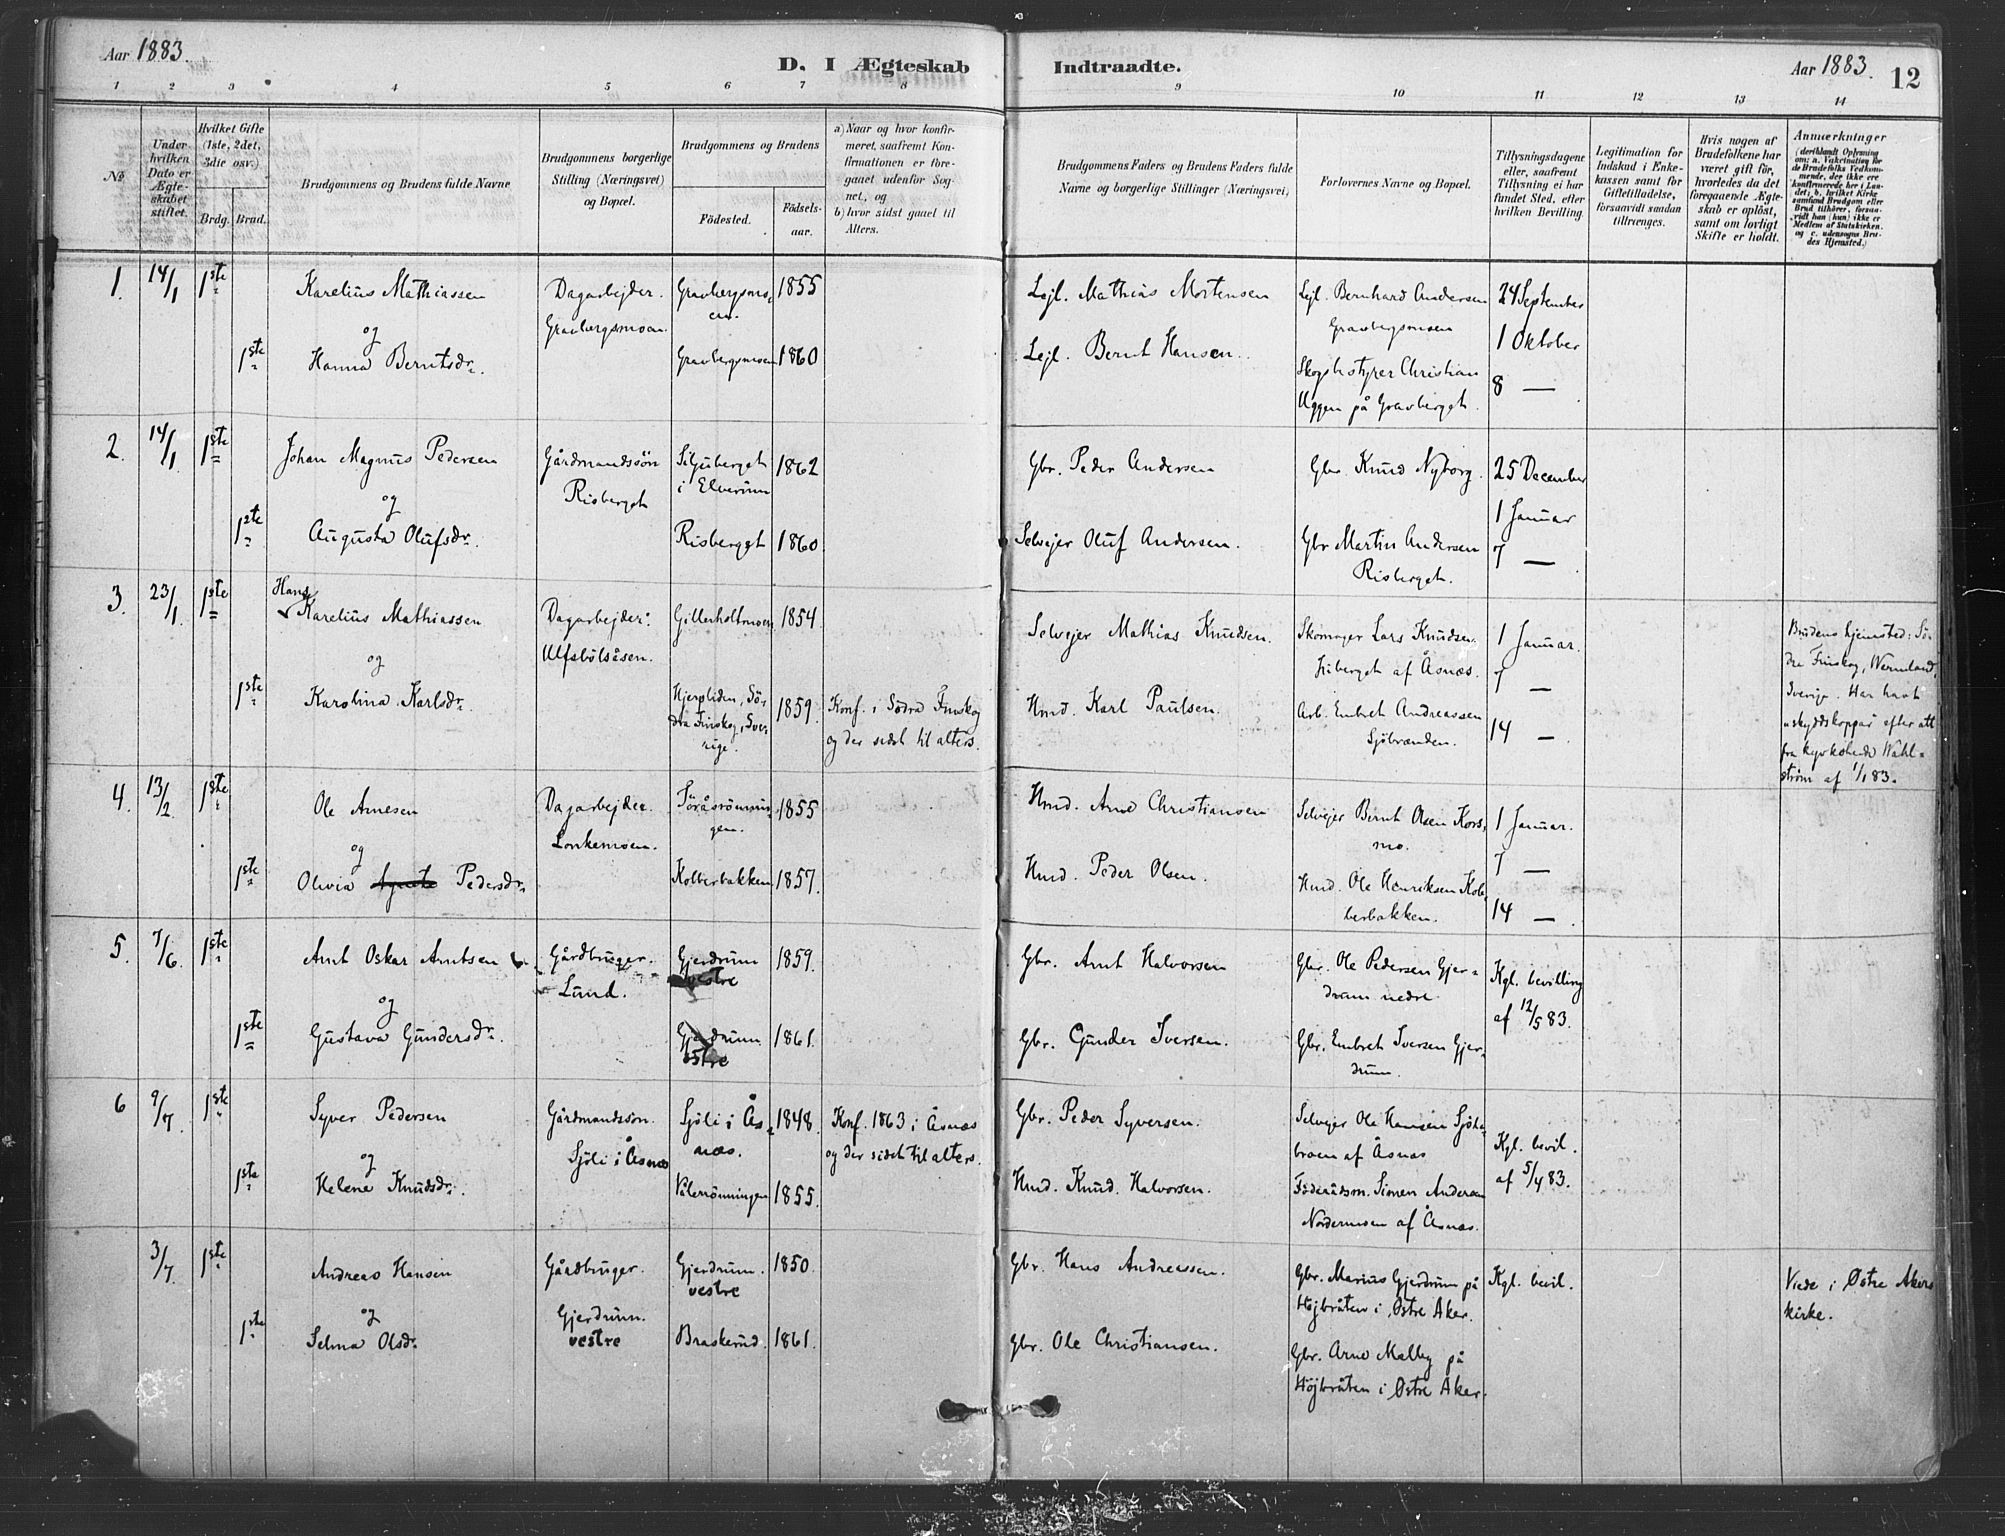 Aar 1883.
D. I Ægteskab Indtraadte.
Aar 1883.
12
1 2 3 4 5 6 7 8 9 10 11 12 13 14
No
Under hvilken Dato er Ægteskabet stiftet.
Hvilket Gifte (1ste, 2det, 3die osv.)
Brdg. Brud.
Brudgommens og Brudens fulde Navne
Brudgommens borgerlige Stilling (Næringsvei) og Bopæl.
Brudgommens og Brudens
Födested.
Födsels-aar.
a) Naar og hvor konfirmeret, saafremt Konfirmationen er foregaaet udenfor Sognet, og
b) hvor sidst gaael til Alters.
Brudgommens Faders og Brudens Faders fulde Navne og borgerlige Stillinger (Næringsvei)
Forlovernes Navne og Bopæl.
Tillysningsdagene eller, saafremt Tillysning ei har fundet Sted, efter hvilken Bevilling.
Legitimation for Indskud i Enkekassen samt for Giftetilladelse, forsaavidt saadan tiltrænges.
Hvis nogen af Brudefolkene har været gift för, hvorledes da det foregaaende Ægteskab er oplöst, samt om lovligt Skifte er holdt.
Anmærkninger
(deriblandt Oplysning om: a. Vakcination for de Brudefolks Vedkommende, der ikke ere konfirmerede her i Landet; b. hvilket Kirkesamfund Brudgom eller Brud tilhörer, forsaavidt han (hun) ikke er Medlem af Statskirken, og c. udensogns Brudes Hjemsted.)
1. 14/1 1ste
Karelius Mathiassen
og
1ste Hanna Berntsdr.
Dagarbejder.
Gravbergsmoen.
Gravbergsmoen. 1855
Gravbergsmoen 1860
Lejl. Mathias Mortensen
Lejl. Bernt Hansen.
Lejl. Bernhard Andersen
Gravbergsmoen
Skogbestyrer Christian
Uggen på Gravberget.
24 September
1 Oktober
8 —
2. 14/1 1ste
Johan Magnus Pedersen
og
1ste Augusta Olufsdr.
Gårdmandssön
Risberget
Siljuberget
i Elverum 1862
Risberget 1860
Gbr. Peder Andersen
Selvejer Oluf Andersen.
Gbr. Knud Nyborg.
Gbr Martin Andersen
Risberget.
25 December
1 Januar
7 —
3. 23/1 1ste
Hans
Karelius Mathiassen
og
1ste Karolina Karlsdr.
Dagarbejder.
Ulfsbölsåsen.
Gillerholtmoen 1854
Hjerpliden, Sö-
dra Finskog, Sve-
rige. 1859.
Konf. i Södra Finskog
og der sidst til alters.
Selvejer Mathias Knudsen.
Hmd. Karl Paulsen.
Skomager Lars Knudsen
af Åsnæs.
Arb. Embret Andreassen
Sjöbrænden.
1 Januar.
7 —
14 —
Brudens hjemsted: Sö-
dra Finskog, Wermland,
Sverige. Har havt
skyddskoppår efter att
fra kyrkoherde Wahl-
ström af 1/1 83.
4. 13/2 1ste
Ole Arnesen
og
1ste Olivia Pedersdr.
Dagarbejder.
Lonkemoen.
Söråsrönnin-
gen. 1855
Kolberbakken 1857.
Hmd. Arne Christiansen
Hmd. Peder Olsen.
Selvejer Bernt Olsen Kors-
mo.
Hmd. Ole Henriksen Kol-
berbakken.
1 Januar.
7 —
14 —
5. 7/6. 1ste
Arnt Oskar Arntsen
og
1ste Gustava Gundersdr.
Gårdbruger.
Lund.
Gjerdrum
vestre 1859.
Gjerdrum
östre 1861.
Gbr. Arnt Halvorsen
Gbr. Gunder Iversen.
Gbr. Ole Pedersen Gjer-
drum nedre.
Gbr. Embret Iversen Gjer-
drum.
Kgl. bevilling
af 12/5 83.
6 9/7. 1ste
Syver Pedersen
og
1ste Helene Knudsdr.
Gårdmandssön.
Sjöli i Åsnæs
Sjöli i Ås-
næs. 1848.
Vålerrönningen 1855.
Konf. 1863 i Åsnæs
og der sidst til alters.
Gbr. Peder Syversen.
Hmd. Knud Halvorsen.
Selvejer Ole Hansen
af Åsnæs
Föderådsm. Simen Andersen
Nordermoen af Åsnæs.
Kgl. bevil.
af 5/4 83.
3/7. 1ste
Andreas Hansen
og
1ste Selma Olsdr.
Gårdbruger.
Gjerdrum.
vestre
Gjerdrum.
vestre 1850.
Braskerud 1861.
Gbr. Hans Andreassen.
Gbr. Ole Christiansen.
Gbr. Marius Gjerdrum på
Höjbråten i Østre Aker.
Gbr. Arne Malby på
Höjbråten i Østre Aker.
Kgl. bevil.
Viede i Østre Akers
kirke.